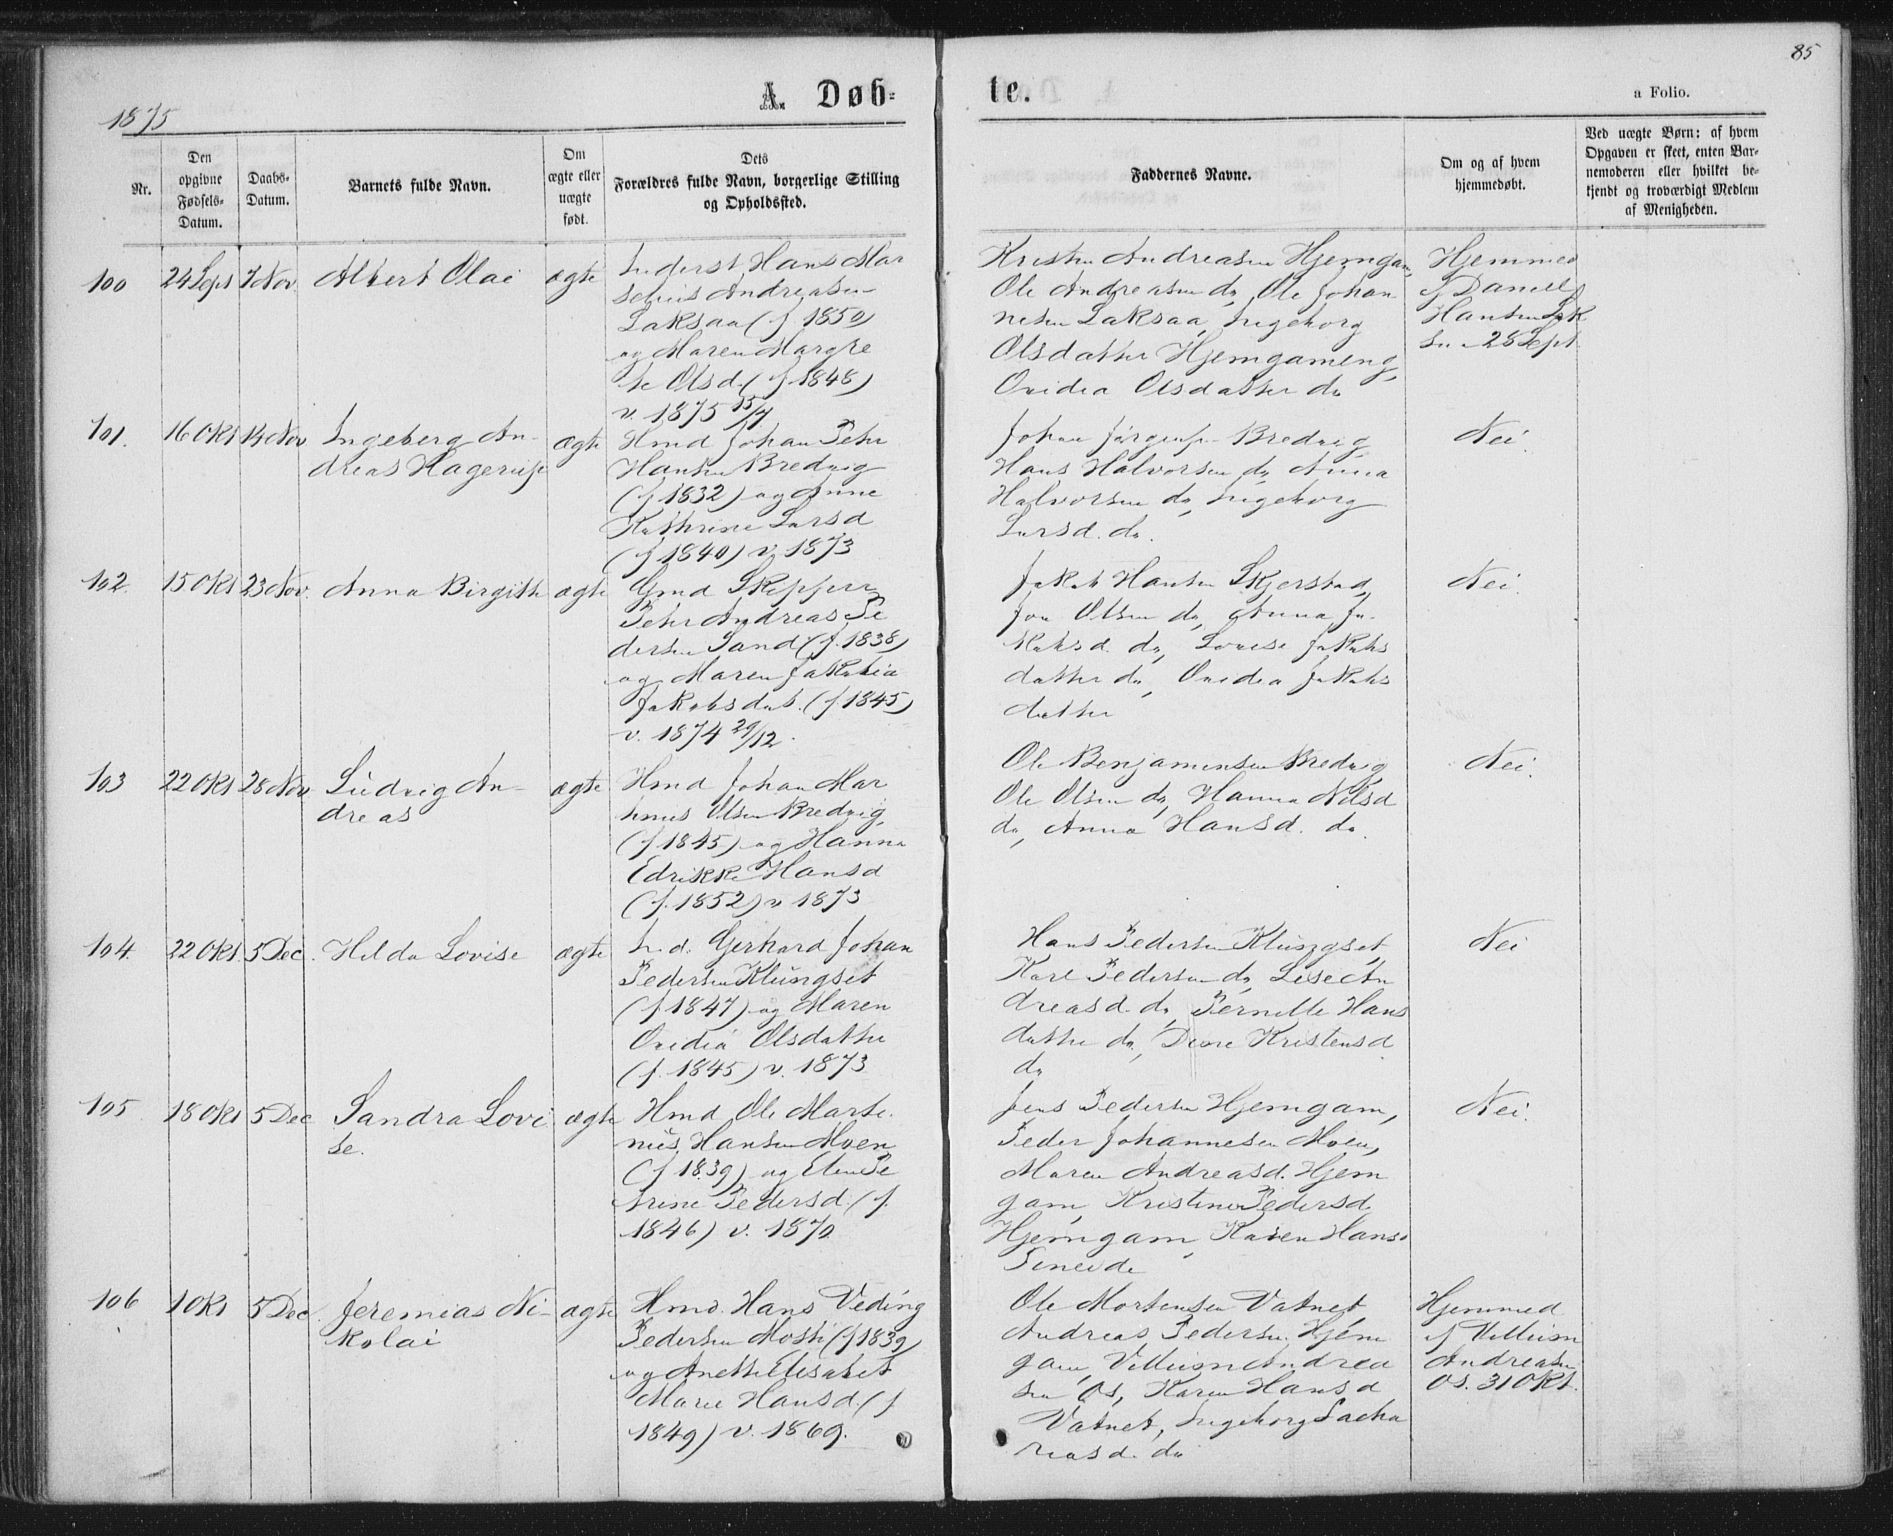 85
1875
A. Døb-
te.
a Folio.
Nr.
Den
opgivne
Fødsels-
Datum.
Daabs-
Datum.
Barnets fulde Navn.
Om
ægte eller
uægte
født.
Dets
Forældres fulde Navn, borgerlige Stilling
og Opholdssted.
Faddernes Navne.
Om og af hvem
hjemmedøbt.
Ved uægte Børn: af hvem
Opgaven er skeet, enten Bar-
nemoderen eller hvilket be-
kjendt og troværdigt Medlem
af Menigheden.
100
24 Sept
7 Nov
Albert Olai
ægte
Inderst Hans Mar
selius Andreasen
Laksaa (f 1850)
og Maren Margre
te Olsd. (f 1848)
v. 1875 15/7
Kristen Andreasen Hjemgam,
Ole Andreasen do, Ole Johan
nesen Laksaa, Ingeborg
Olsdatter Hjemgameng,
Ovidia Olsdatter do
Hjemmed
af Daniel
Hansen
28 Sept
101.
16 Okt
14 Nov
Ingeberg An-
dreas
ægte
Hmd Johan Peter
Hansen Bredvig
(f 1832) og Anne
Kathrine Larsd
(f 1840) v. 1873
Johan Jörgens. Bredvig,
Hans Halvorsen do, Anna
Halvorsen do, Ingeborg
Larsd. do.
Nei.
102
15 Okt
23 Nov.
Anna Birgitte
ægte
Gmd Skipper
Peter Andreas Pe
dersen Sand (f. 1838)
og Maren Jakobia
Jakobsdat. (f 1845)
v. 1874 29/12.
Jakob Hansen Skjerstad,
Jon Olsen do, Anna Ja-
kobsd. do, Lovise Jakobs
datter do, Ovedia Jakobs
datter
Nei.
103
22 Okt
28 Nov
Ludvig An-
dreas
ægte
Hmd Johan Mar
tinus Olsen Bredvig,
(f 1845) og Hanna
Edrikke Hansd
(f. 1852) v 1873
Ole Benjaminsen Bredvig,
Ole Olsen do, Hanna Nilsd
do, Anna Hansd. do.
Nei.
104.
22 Okt.
5 Dec.
Hilda Lovise
ægte
In. d. Gerhard Johan
Pedersen Klungset
(f 1847) og Maren
Ovidia Olsdatter
(f. 1845) v. 1873
Hans Pedersen Klungset,
Karl Pedersen do, Lise An
dreasd. do, Pernille Hans
datter do, Dine Kristensd
do
Nei
105
18 Okt
5 Dec
Sandra Lovi
se.
ægte
Hmd Ole Marti
nus Hansen Moen
(f 1839) og Elen Pe
trine Pedersd. (f.
1846) v. 1870
Jens Pedersen Hjemgam,
Peder Johannesen Moen,
Maren Andreasd. Hjem
gam, Kristine Pedersd.
Hjemgam, Karen Hans
Nei.
106
1 Okt
5 Dec.
Jeremias Ni-
kolai
ægte
Hmd. Hans Veding
Pedersen Mosti (f 1839)
og Anette Elisabet
Marie Hansd. (f
1849) v. 1869.
Ole Mortensen Vatnet,
Andreas Pedersen Hjem
gam, Villum Andrea
sen Os, Karen Hansd
Vatnet, Ingeborg Sacha
riasd. do
Hjemmed
af Villum
Andreasen
Os. 31 Okt.